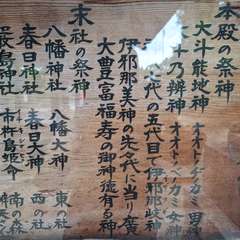 本殿の祭神
大斗能地神 オオトノヂカミ 男神
大斗乃辨神 オオトノベカミ 女神
代の五代目で伊邪那岐神
伊邪那美神の先々代に当り廣
大豊富福寿の御神徳有る神
末社の祭神
八幡神社 八幡大神 東の社
春日神社 春日大神 西の社
厳島神社 市杵島姫命 南の森